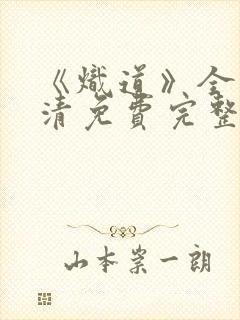 《熾道》全
清免費完整
山本崇一朗